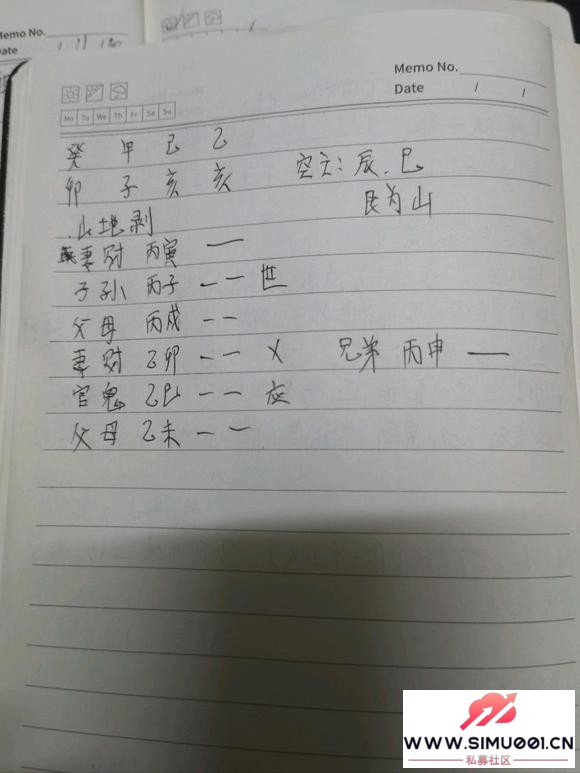 Memo No.
Date
Memo No.
Date / /
Mo Tu We Th Fr Sa Su
癸 甲 己 乙
卯 子 亥 亥 空亡:辰、巳
艮为山
山地剥
妻财 丙寅 —
子孙 丙子 -- 世
父母 丙戌 --
妻财 乙卯 -- X 兄弟 丙申 —
官鬼 乙巳 -- 应
父母 乙未 --
WWW.SIMU001.CN
私募社区